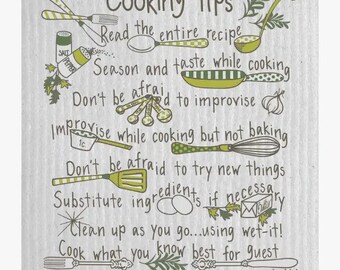 Cooking Tips
Read the entire recipe
SALT
PEPPER
Season and taste while cooking
Don't be afraid to improvise
Improvise while cooking but not baking
1c
Don't be afraid to try new things
Substitute ingredients if necessary
Clean up as you go...using wet-it!
Cook what you know best for guest